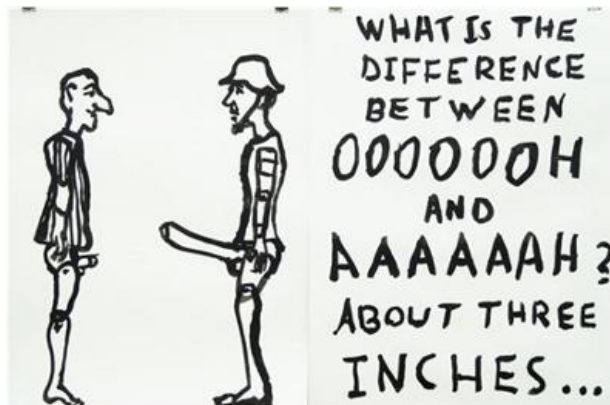 WHAT IS THE
DIFFERENCE
BETWEEN
OOOOOOH
AND
AAAAAAH?
ABOUT THREE
INCHES...